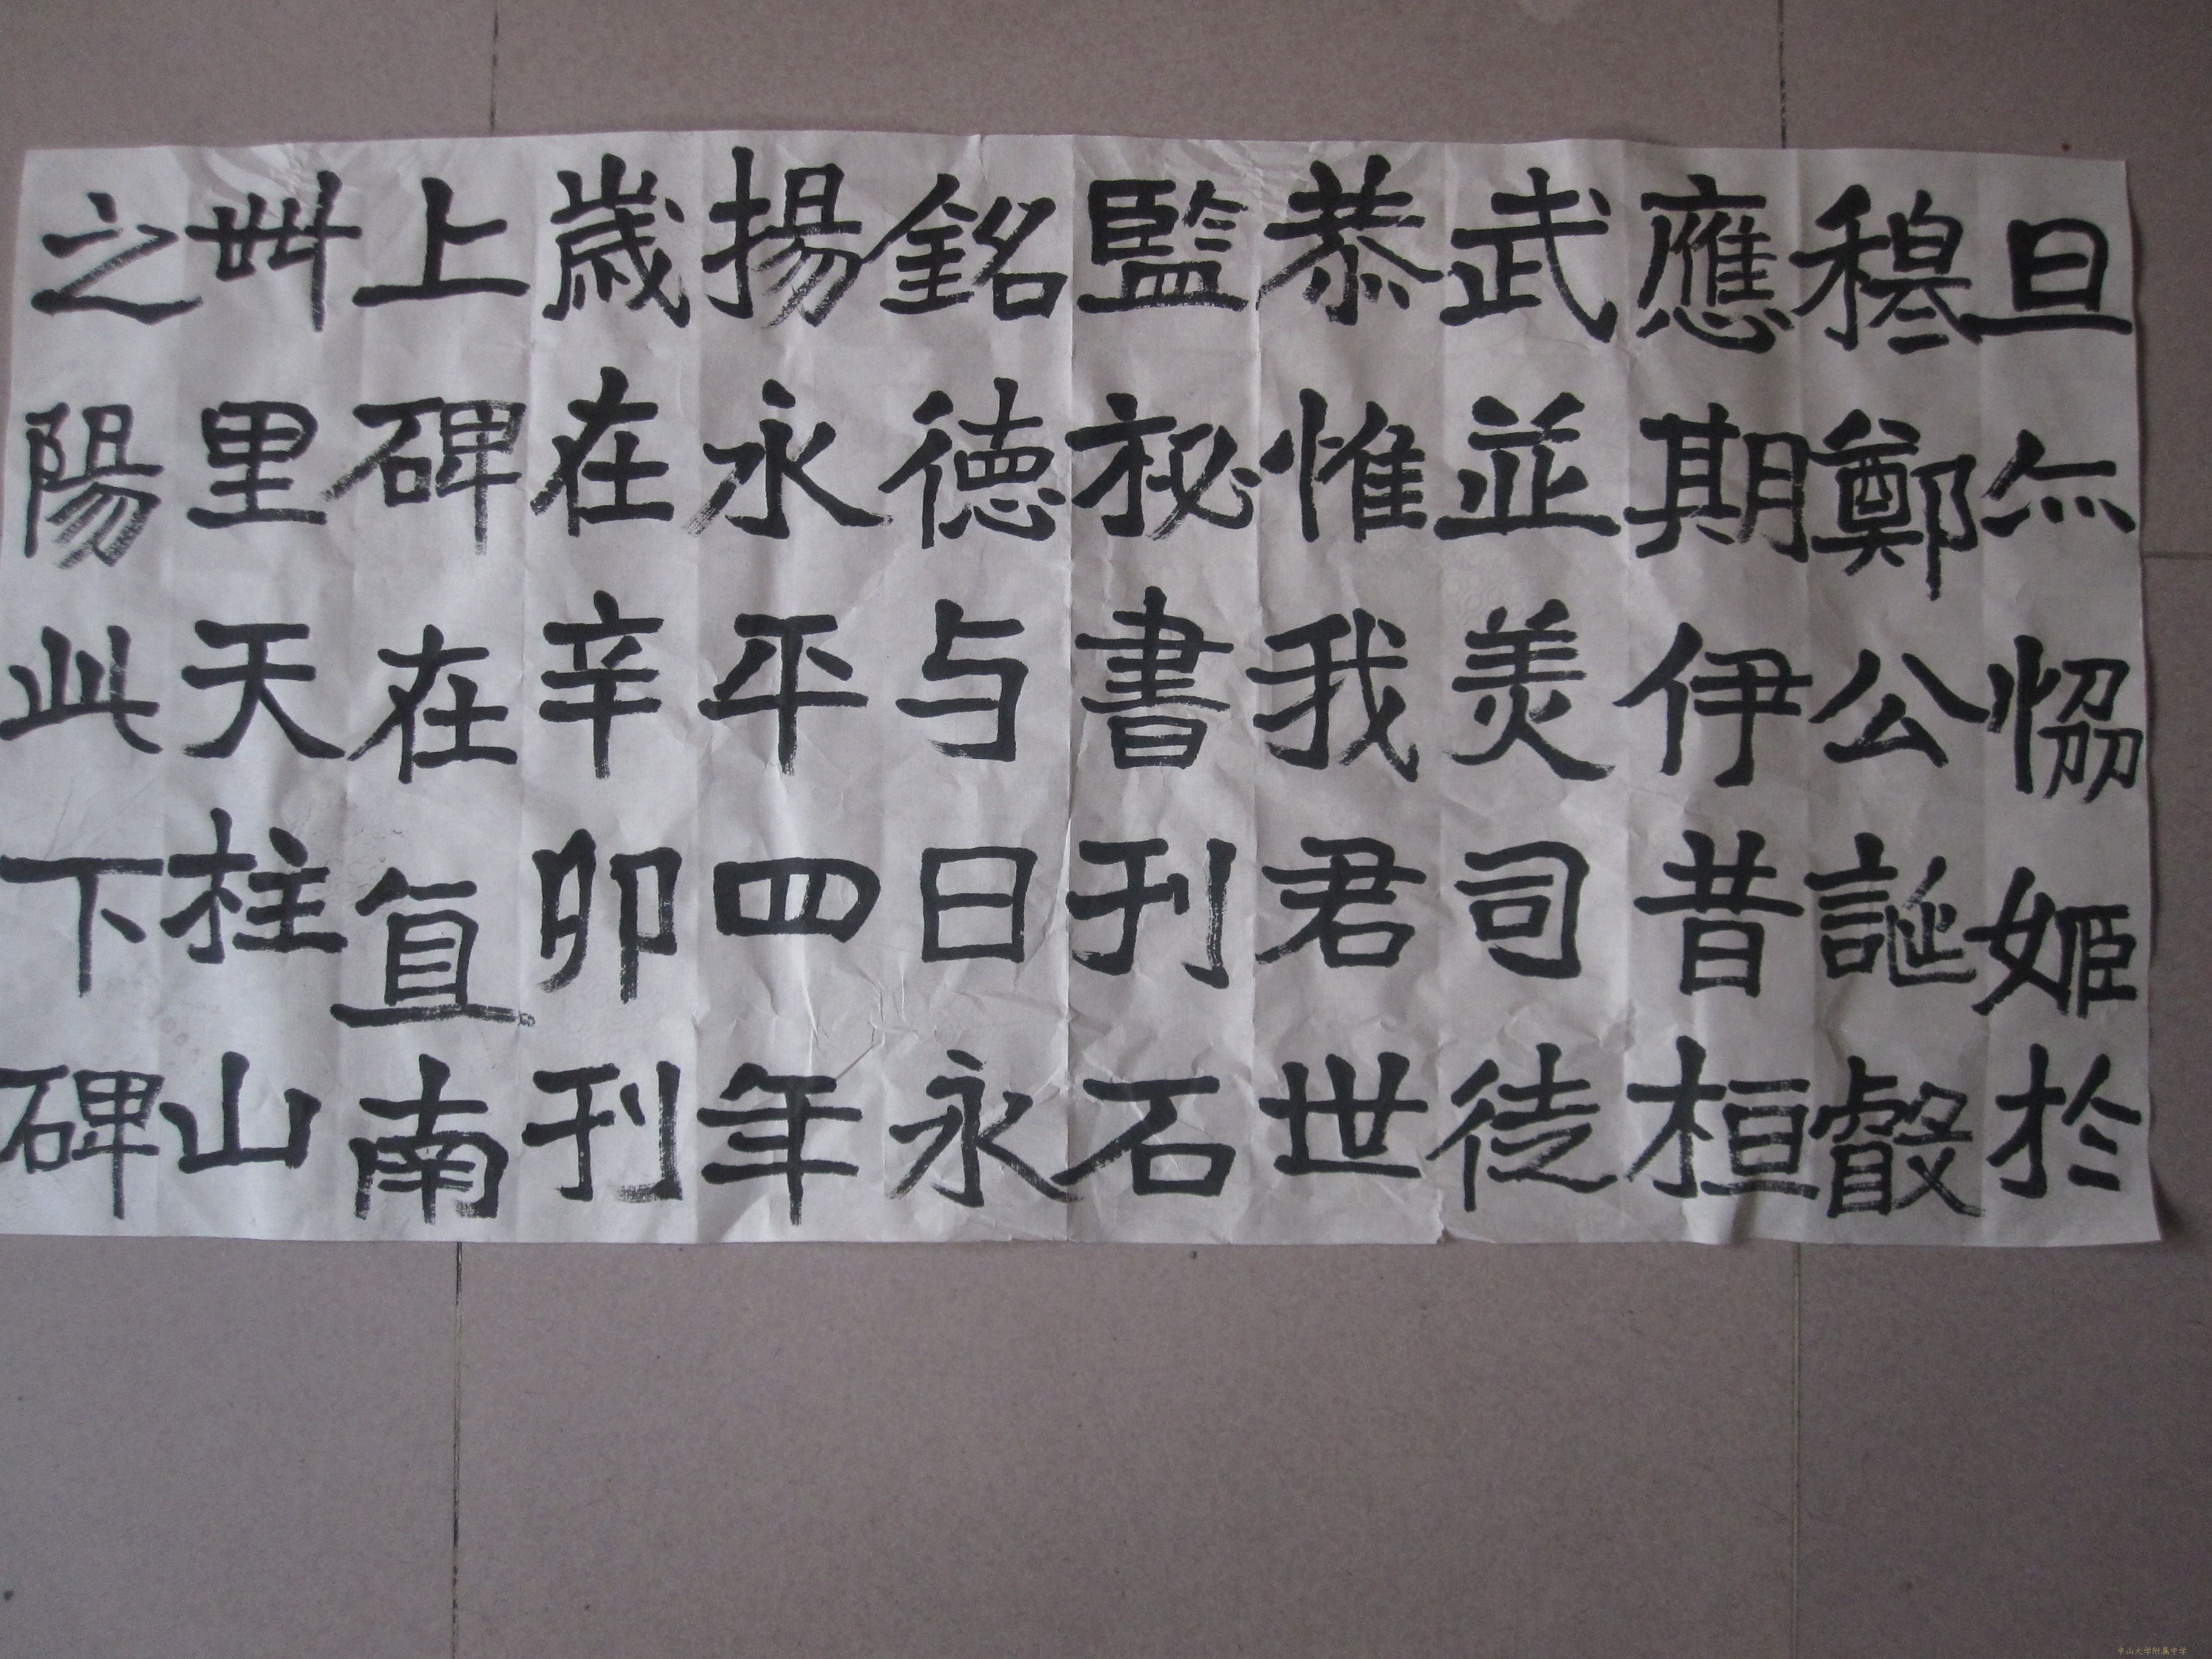 旦尒恊姬於
穆鄭公誕叡
應期伊昔桓
武並羙司徒
恭惟我君世
監祕書刊石
銘德与日永
揚永平四年
歲在辛卯刊
上碑在直南
卌里天柱山
之陽此下碑
中山大学附属中学